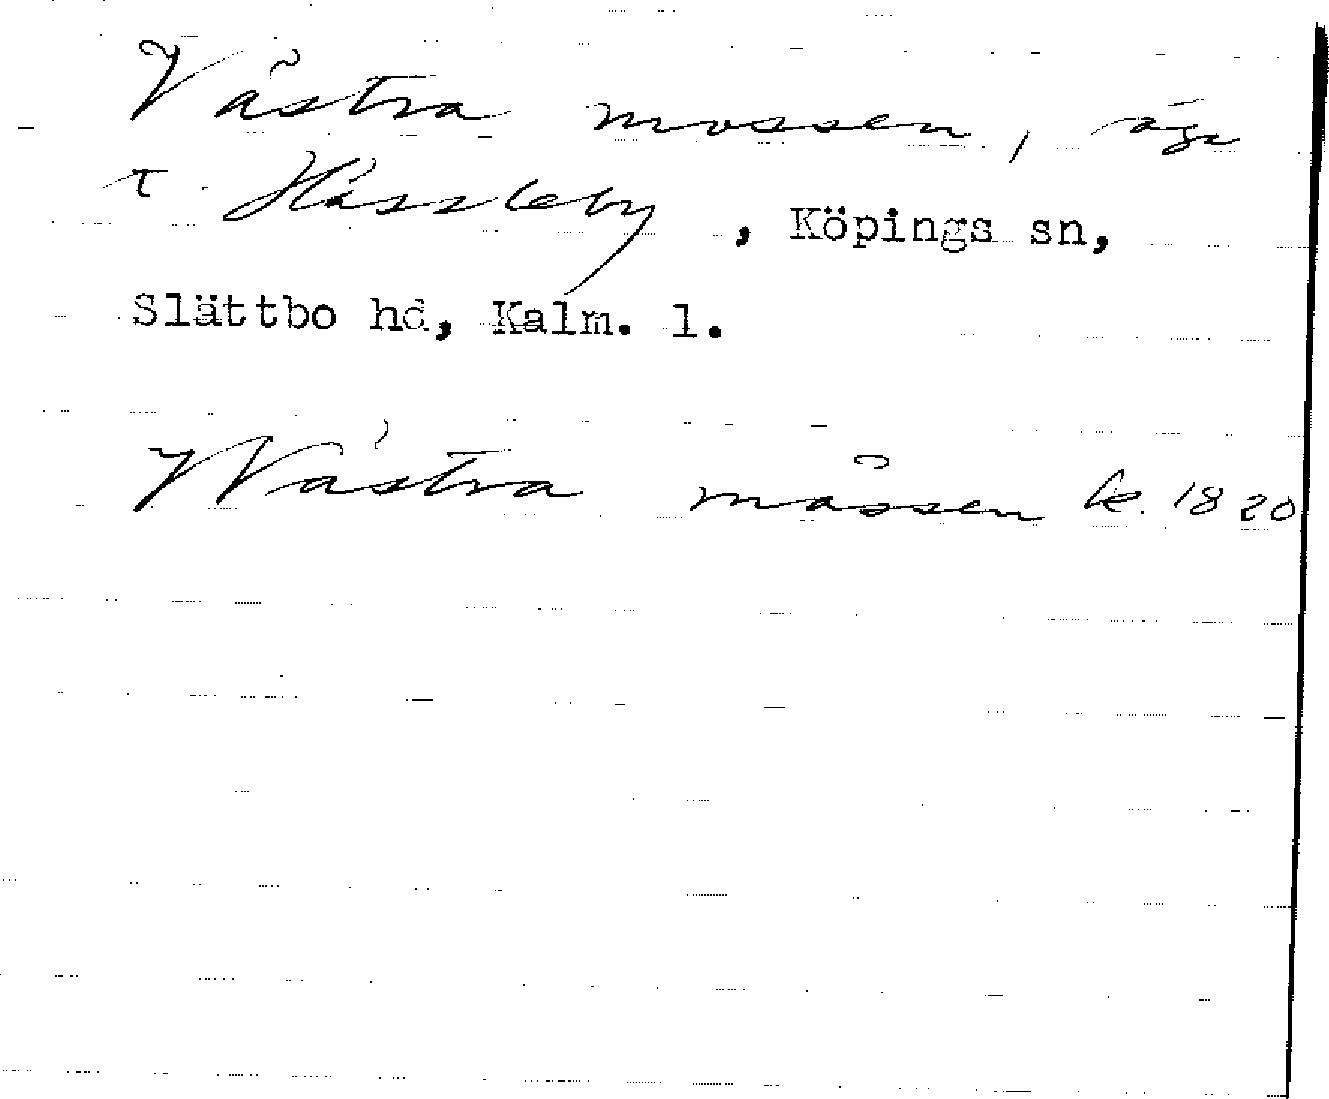 Västra mossen, äga
t. Hässleby, Köpings sn,
Slättbo hd, Kalm. l.
Wästra måssen k. 1820